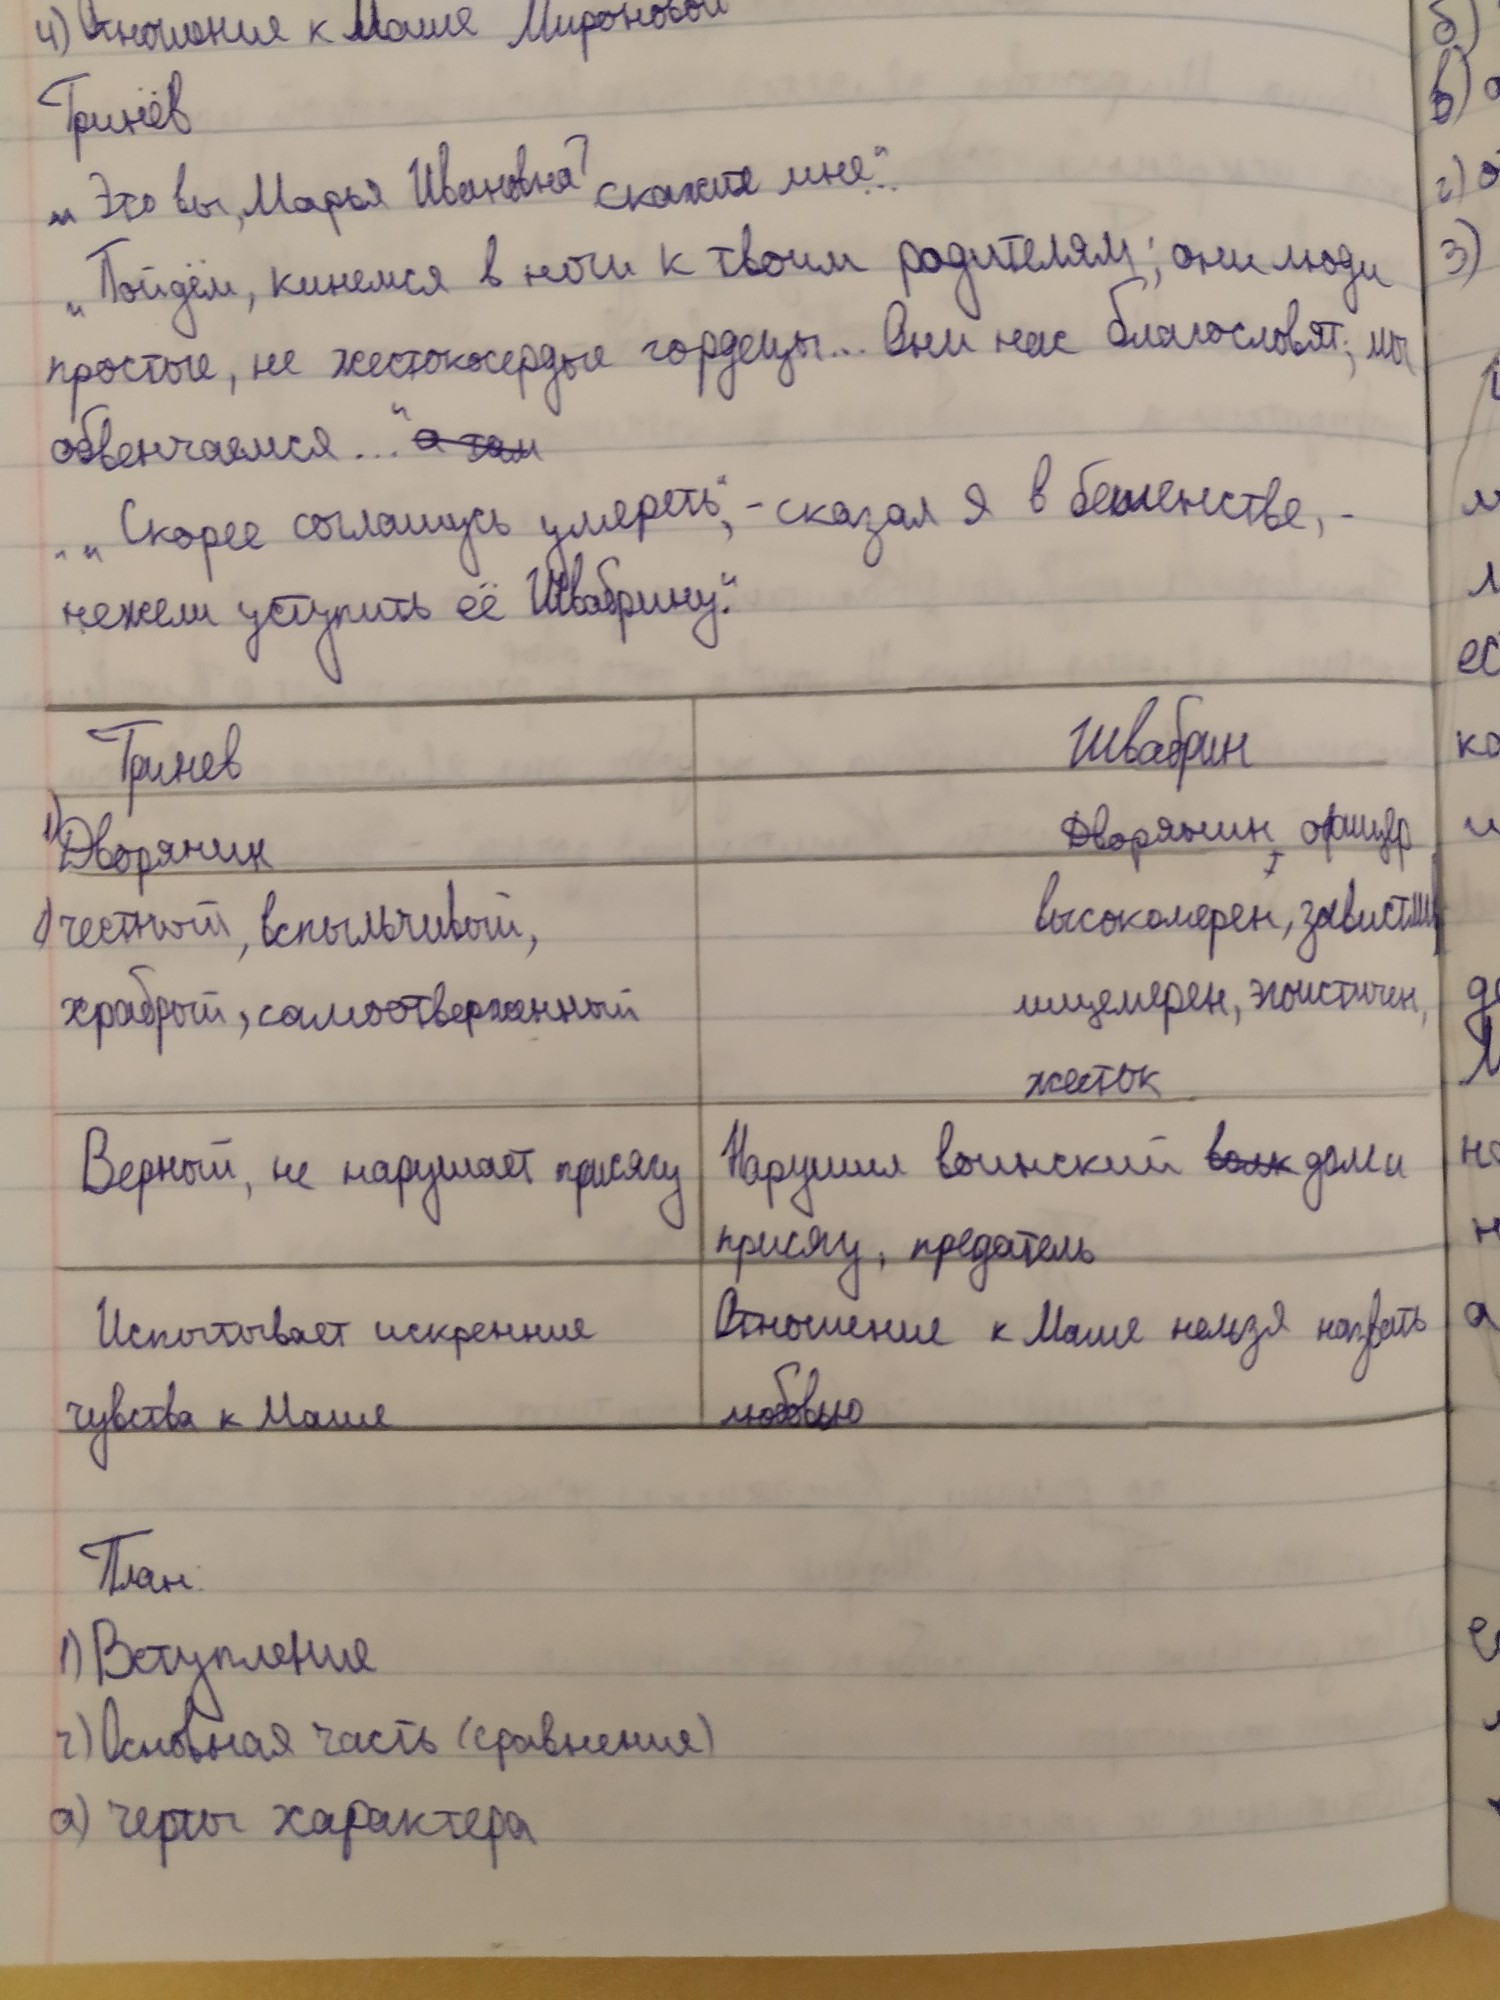 4) Отношения к Маше Мироновой
Гринёв
„Это вы, Марья Ивановна? скажите мне..."
„Пойдём, кинемся в ноги к твоим родителям; они люди
простые, не жестокосердые гордецы... Они нас благословят; мы
обвенчаемся..." а там
„Скорее соглашусь умереть", - сказал я в бешенстве, -
нежели уступить её Швабрину."
Гринев Швабрин
1) Дворянин Дворянин, офицер
2) честный, вспыльчивый, высокомерен, завистлив
храбрый, самоотверженный лицемерен, эгоистичен,
жесток
Верный, не нарушает присягу Нарушил воинский долг и
присягу, предатель
Испытывает искренние Отношение к Маше нельзя назвать
чувства к Маше любовью
План:
1) Вступление
2) Основная часть (сравнения)
а) черты характера
б)
в)
г)
3)